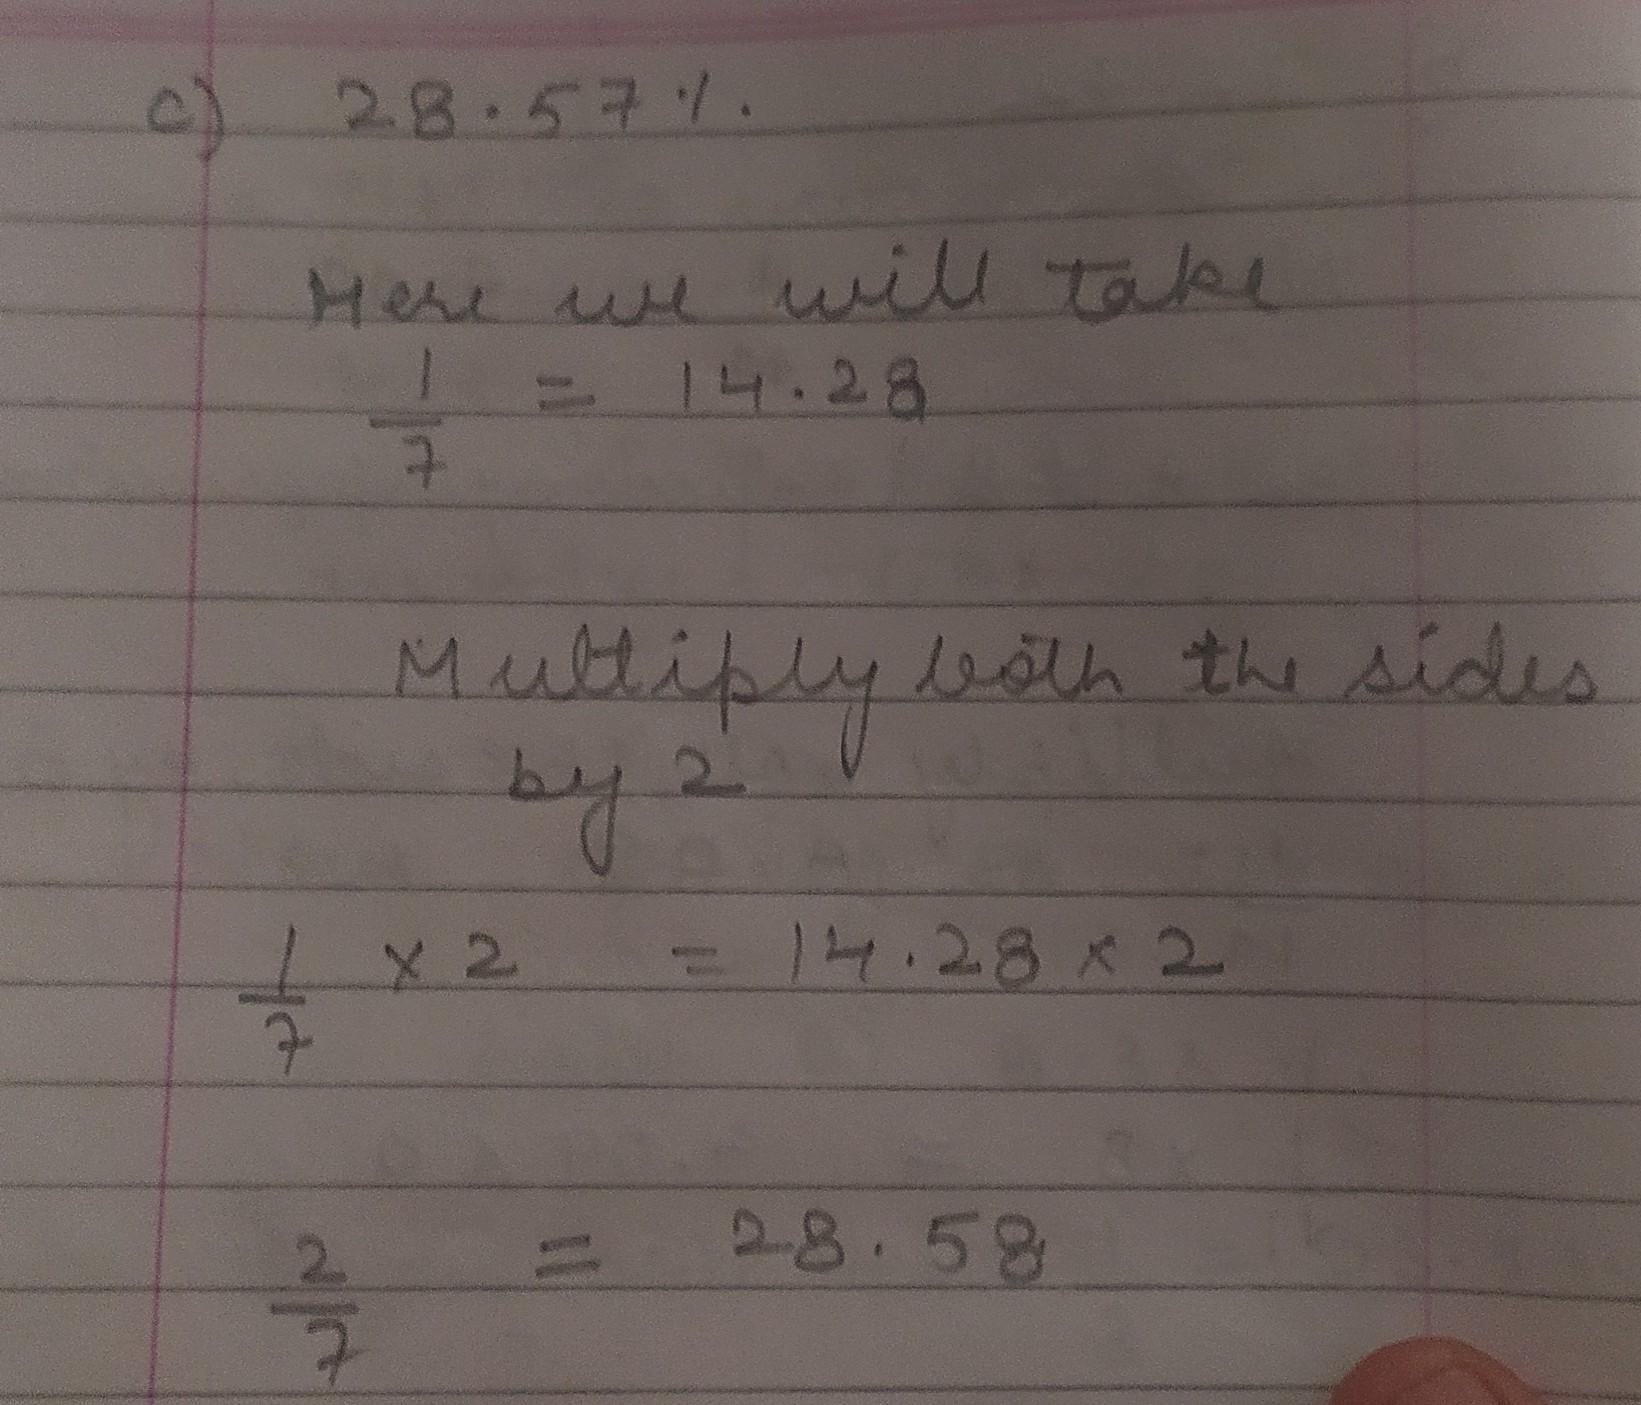 c) 28.57%.
Here we will take
1/7 = 14.28
Multiply both the sides
by 2
1/7 × 2 = 14.28 × 2
2/7 = 28.58